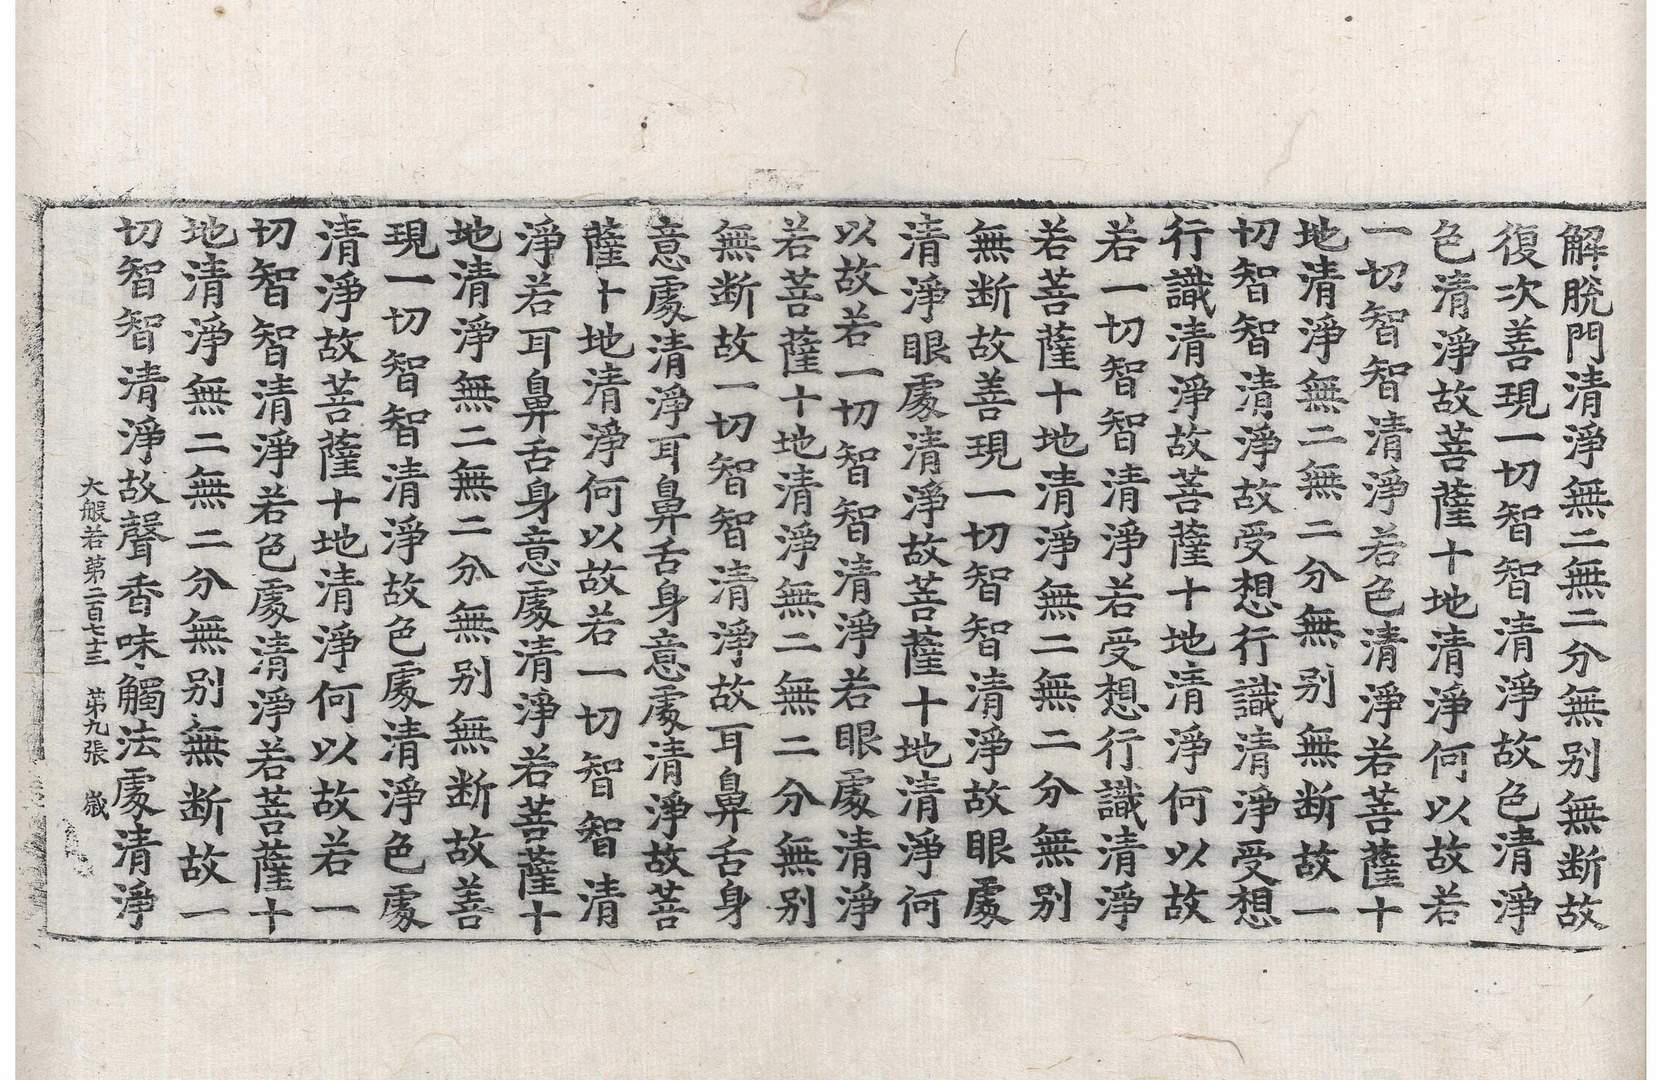 解脫門清淨無二無二分無别無断故
復次善現一切智智清淨故色清淨
色清淨故菩薩十地清淨何以故若
一切智智清淨若色清淨若菩薩十
地清淨無二無二分無别無断故一
切智智清淨故受想行識清淨受想
行識清淨故菩薩十地清淨何以故
若一切智智清淨若受想行識清淨
若菩薩十地清淨無二無二分無别
無断故善現一切智智清淨故眼處
清淨眼處清淨故菩薩十地清淨何
以故若一切智智清淨若眼處清淨
若菩薩十地清淨無二無二分無别
無断故一切智智清淨故耳鼻舌身
意處清淨耳鼻舌身意處清淨故菩
薩十地清淨何以故若一切智智清
淨若耳鼻舌身意處清淨若菩薩十
地清淨無二無二分無别無断故善
現一切智智清淨故色處清淨色處
清淨故菩薩十地清淨何以故若一
切智智清淨若色處清淨若菩薩十
地清淨無二無二分無别無断故一
切智智清淨故聲香味觸法處清淨
大般若第二百七十三 第九張 嵗